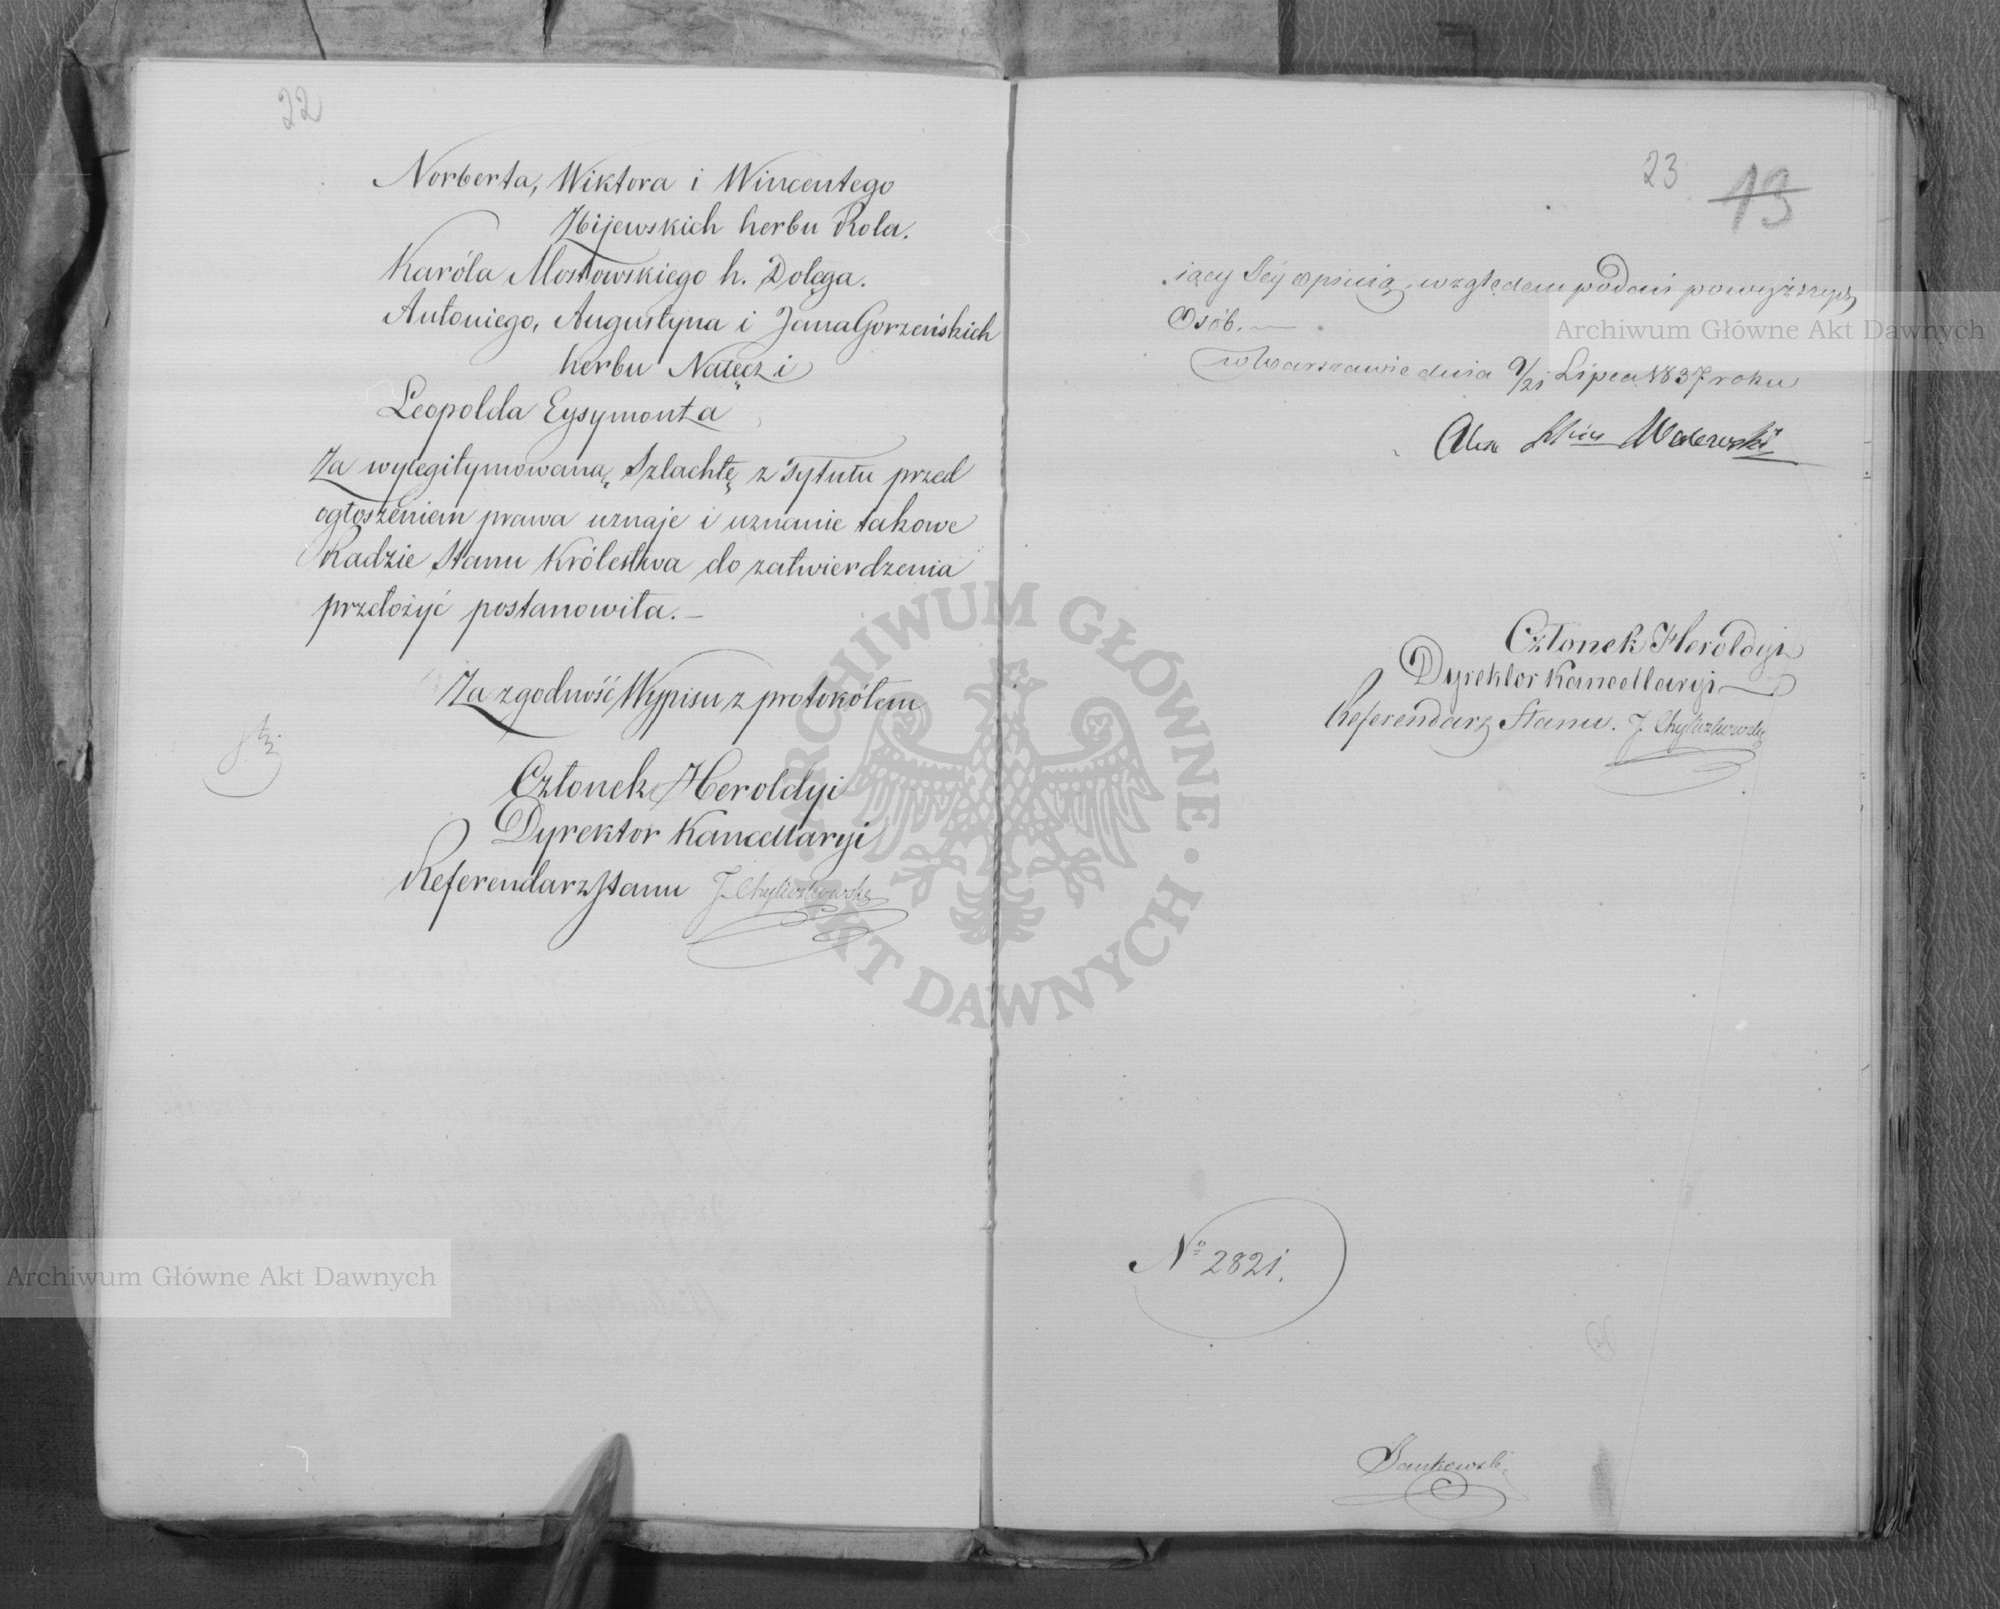 22
Norberta, Wiktora i Wincentego
Zbijewskich herbu Rola.
Karóla Mostowskiego h. Dołęga.
Antoniego, Augustyna i Jana Gorzeńskich
herbu Nałęcz i
Leopolda Eysymonta
Za wylegitymowaną Szlachtę z Tytułu przed
ogłoszeniem prawa uznaje i uznanie takowe
Radzie Stanu Królestwa do zatwierdzenia
przełożyć postanowiła. —
Za zgodność Wypisu z protokółem
Członek Heroldyi
Dyrektor Kancellaryi
Referendarz Stanu J. Chyliczkowski
23 13
iący Jéy opinią, względem podań powyższych
Osób. —
w Warszawie dnia 9/21 Lipca 1837 roku
Alex Walewski
Członek Heroldyi
Dyrektor Kancellaryi
Referendarz Stanu. J. Chyliczkowski
No 2821.
Archiwum Główne Akt Dawnych
Archiwum Główne Akt Dawnych
ARCHIWUM GŁÓWNE AKT DAWNYCH